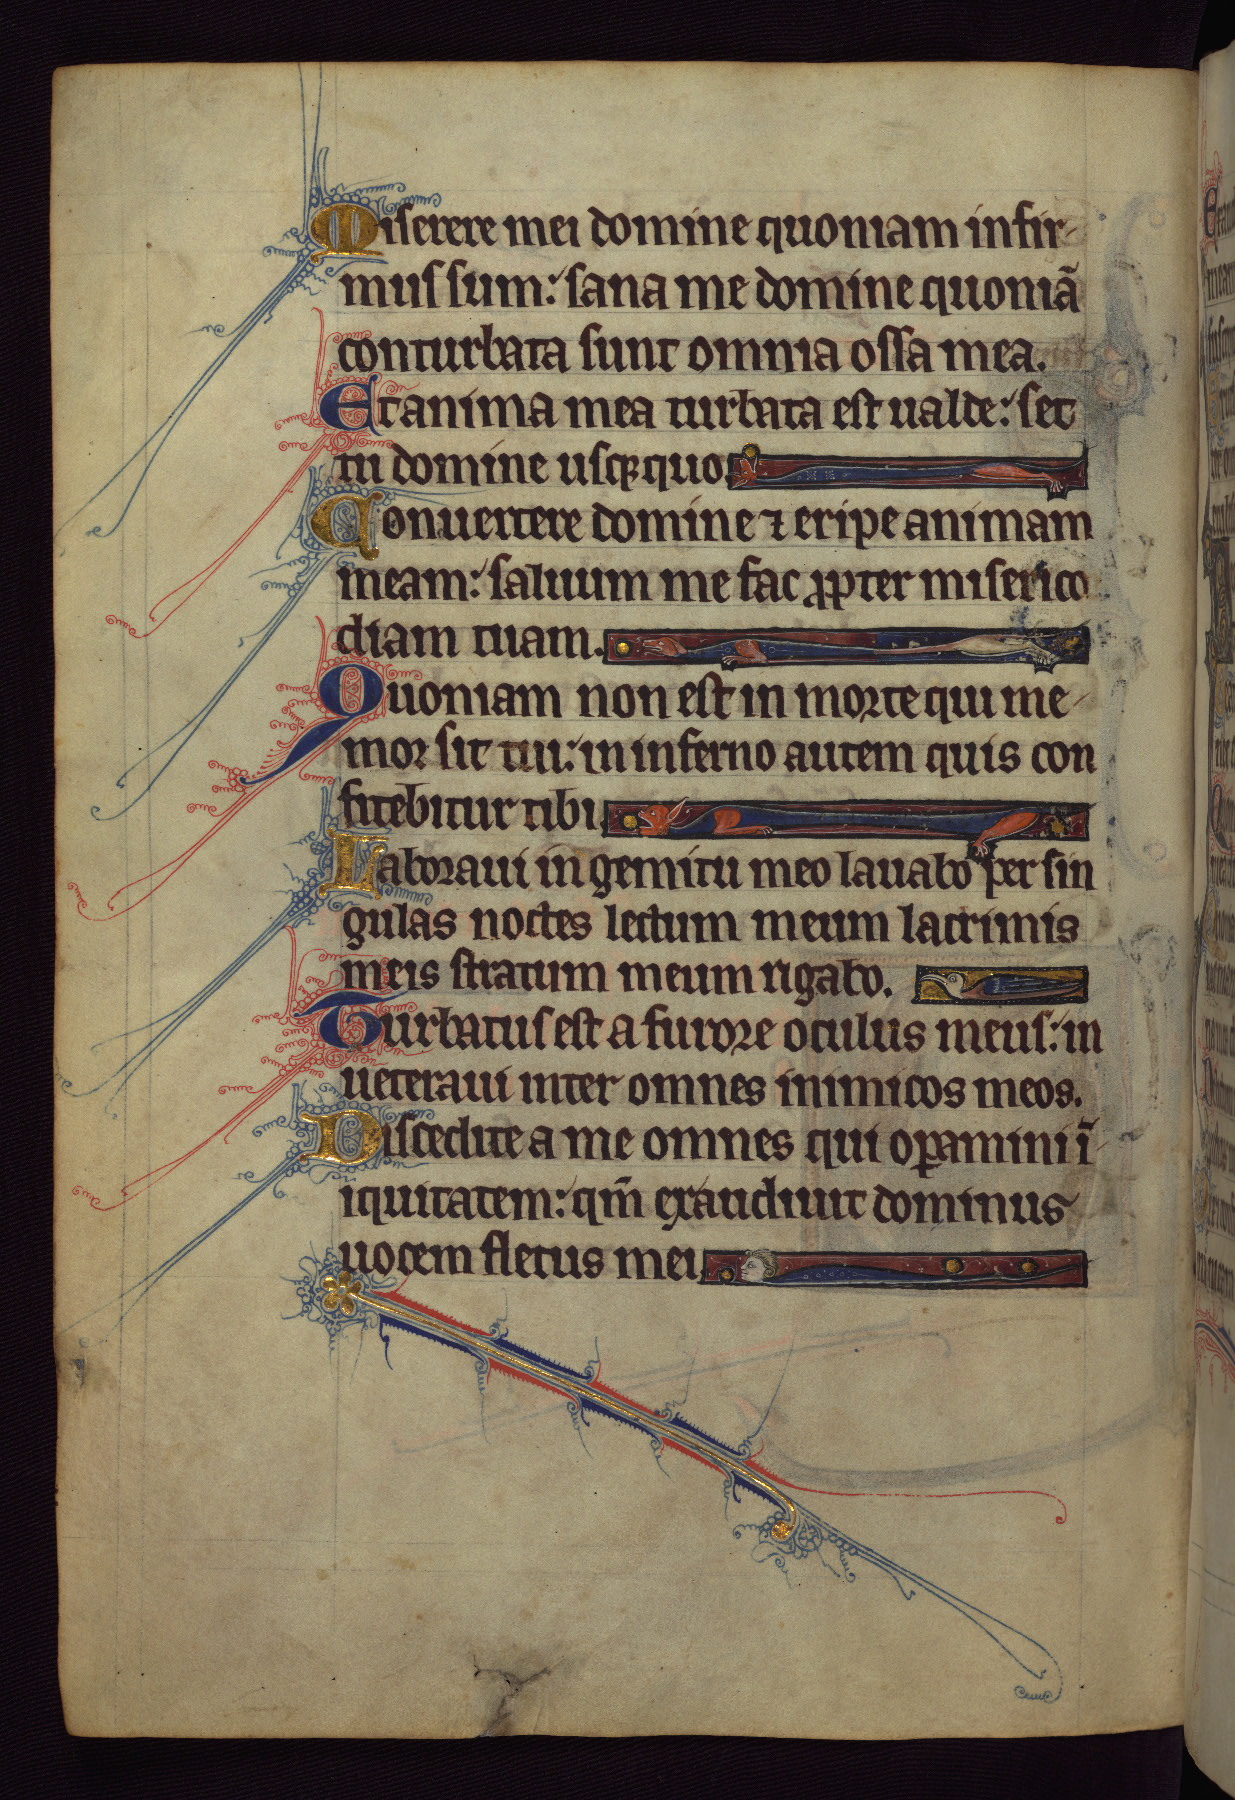 Miserere mei domine quoniam infir-
mus sum: sana me domine quoniã
conturbata sunt omnia ossa mea.
Et anima mea turbata est ualde: set
tu domine usqꝫ quo.
Conuertere domine ⁊ eripe animam
meam: saluum me fac ꝓpter miserico
diam tuam.
Quoniam non est in morte qui me-
mor sit tui: in inferno autem quis con
fitebitur tibi
Laboraui in gemitu meo lauabo per sin
gulas noctes lectum meum lacrimis
meis stratum meum rigabo.
Turbatus est a furore oculus meus: in
ueteraui inter omnes inimicos meos.
Discedite a me omnes qui oꝑamini ĩ-
iquitatem: qm̃ exaudiuit dominus
uocem fletus mei